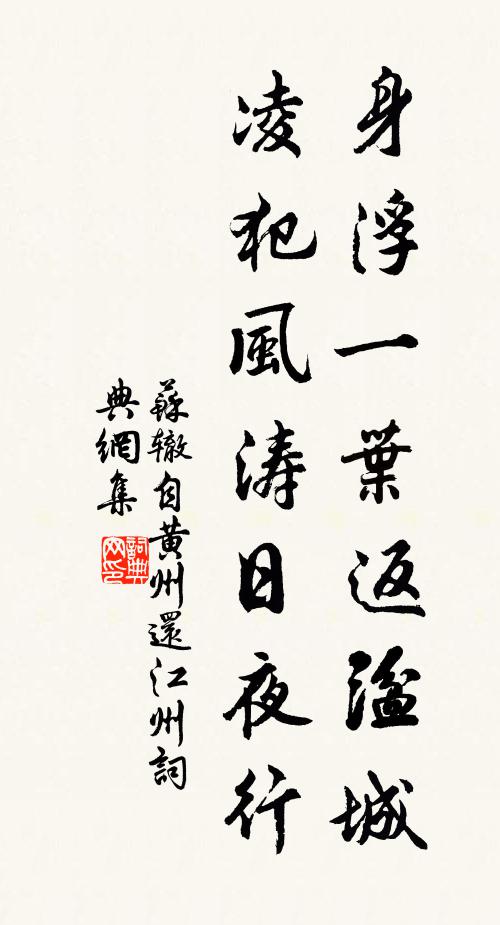 身浮一葉返湓城
凌犯風濤日夜行
蘇轍自黃州還江州詞
典網集
詞典
网印